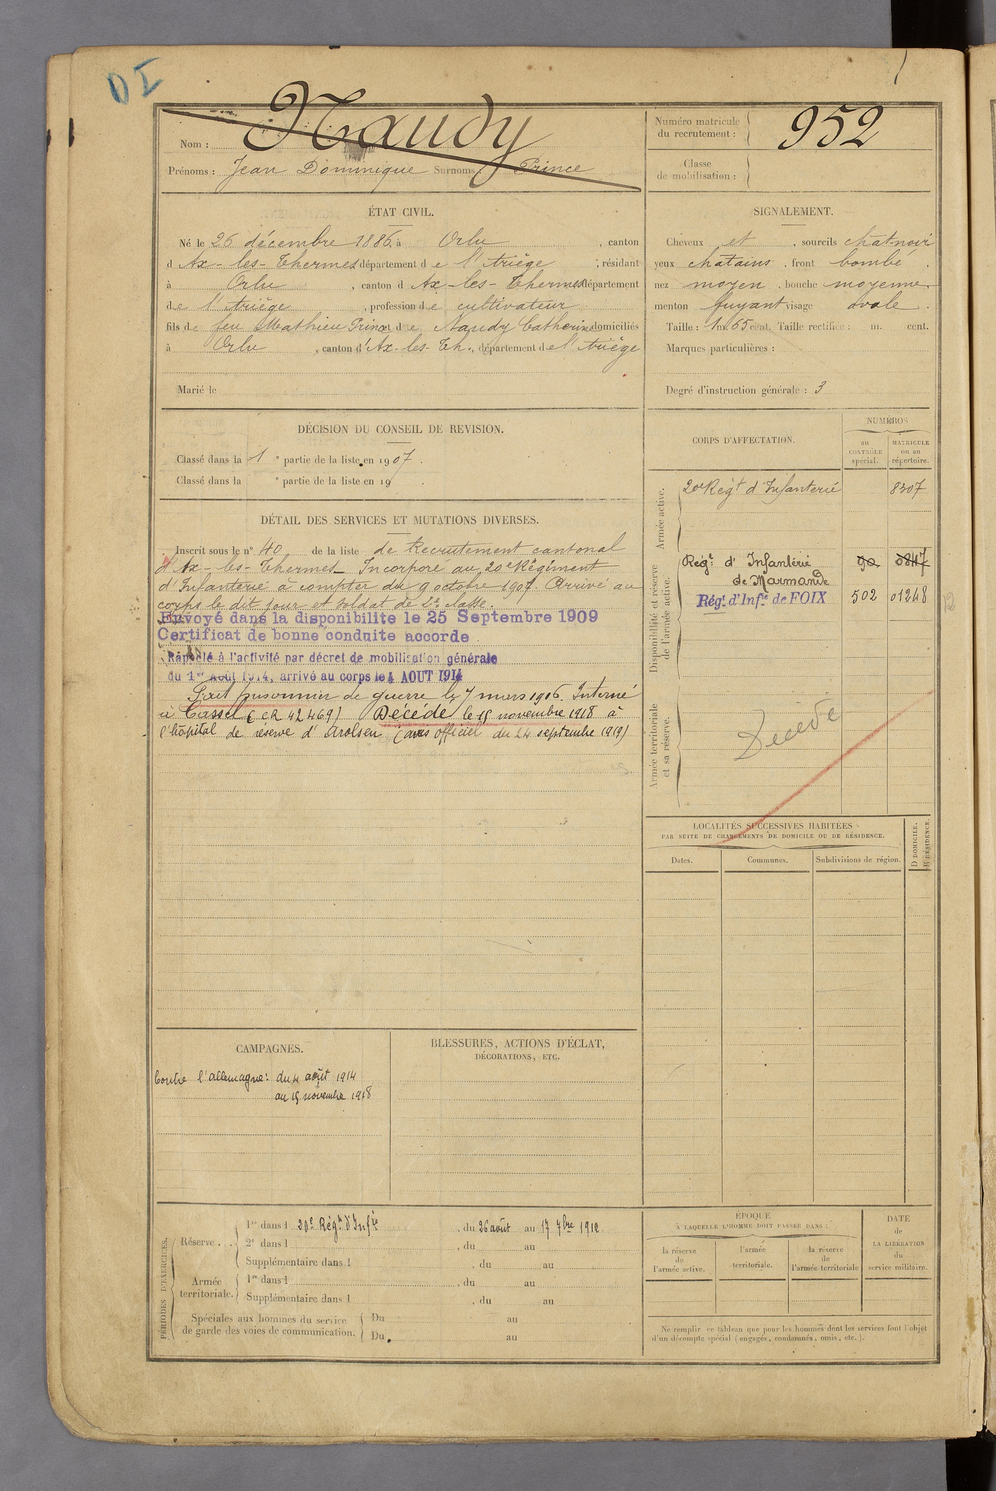 DI
Nom : Naudy
Prénoms : Jean Dominique Surnoms : Prince
Numéro matricule du recrutement : 952
Classe de mobilisation :
ÉTAT CIVIL.
Né le 26 décembre 1886, à Orlu , canton
d'Ax-les-Thermes, département de l'Ariège , résidant
à Orlu , canton d'Ax-les-Thermes, département
de l'Ariège , profession de cultivateur
fils de feu Mathieu Prince et de Naudy Catherine domiciliés
à Orlu , canton d'Ax-les-Th., département de l'Ariège
Marié le
SIGNALEMENT.
Cheveux et , sourcils chat-noir
yeux chatains , front bombé .
nez moyen , bouche moyenne
menton fuyant visage ovale .
Taille : 1 m. 65 cent. Taille rectifiée : m. cent.
Marques particulières :
Degré d'instruction générale : 3
DÉCISION DU CONSEIL DE REVISION.
Classé dans la 1 e partie de la liste en 1907 .
Classé dans la e partie de la liste en 19
DÉTAIL DES SERVICES ET MUTATIONS DIVERSES.
Inscrit sous le n° 40 de la liste de Recrutement cantonal
d'Ax-les-Thermes. Incorporé au 20e Régiment
d'Infanterie à compter du 9 octobre 1907. Arrivé au
corps le dit jour et soldat de 2e classe.
Envoyé dans la disponibilite le 25 Septembre 1909
Certificat de bonne conduite accorde
Rappelé à l'activité par décret de mobilisation générale
du 1er Août 1914, arrivé au corps le 4 AOUT 1914
Fait prisonnier de guerre le 7 mars 1916. Interné
à Cassel (CR 42469) Décédé le 15 novembre 1918 à
l'hôpital de réserve d'Arolsen (avis officiel du 24 septembre 1919)
CORPS D'AFFECTATION.
NUMÉROS
au CONTRÔLE spécial.
MATRICULE ou au répertoire.
Armée active.
20e Régt d'Infanterie 8307
Disponibilité et réserve de l'armée active.
Régt d'Infanterie de Marmande
Régt d'Infie de FOIX 502 01248
Armée territoriale et sa réserve.
Décédé
LOCALITÉS SUCCESSIVES HABITÉES
PAR SUITE DE CHANGEMENTS DE DOMICILE OU DE RÉSIDENCE.
Dates.
Communes.
Subdivisions de région.
D DOMICILE.
R RÉSIDENCE.
CAMPAGNES.
Contre l'Allemagne : du 4 août 1914
au 15 novembre 1918
BLESSURES, ACTIONS D'ÉCLAT,
DÉCORATIONS, ETC.
PÉRIODES D'EXERCICES.
Réserve . .
1re dans l 20e Régt d'Infie , du 26 août au 17 7bre 1912
2e dans l , du au
Supplémentaire dans l , du au
Armée territoriale.
1re dans l , du au
Supplémentaire dans l , du au
Spéciales aux hommes du service de garde des voies de communication.
Du au
Du au
ÉPOQUE
À LAQUELLE L'HOMME DOIT PASSER DANS :
la réserve de l'armée active.
l'armée territoriale.
la réserve de l'armée territoriale
DATE de LA LIBÉRATION du service militaire.
Ne remplir ce tableau que pour les hommes dont les services font l'objet
d'un décompte spécial (engagés, condamnés, omis, etc.).